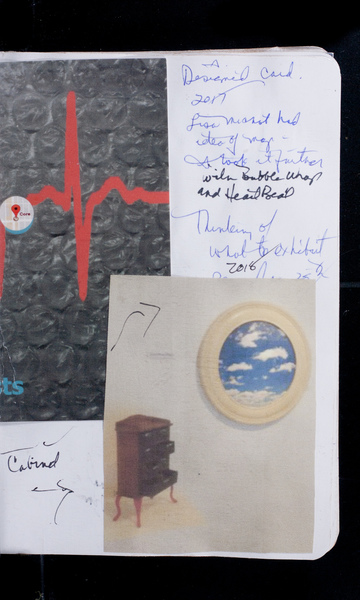 A
Designed card.
2017
Lisa had
idea of map -
I took it further
with Bubble Wrap
and HeartBeat
Thinking of
what to exhibit
2018
Care
sts
Cabinet